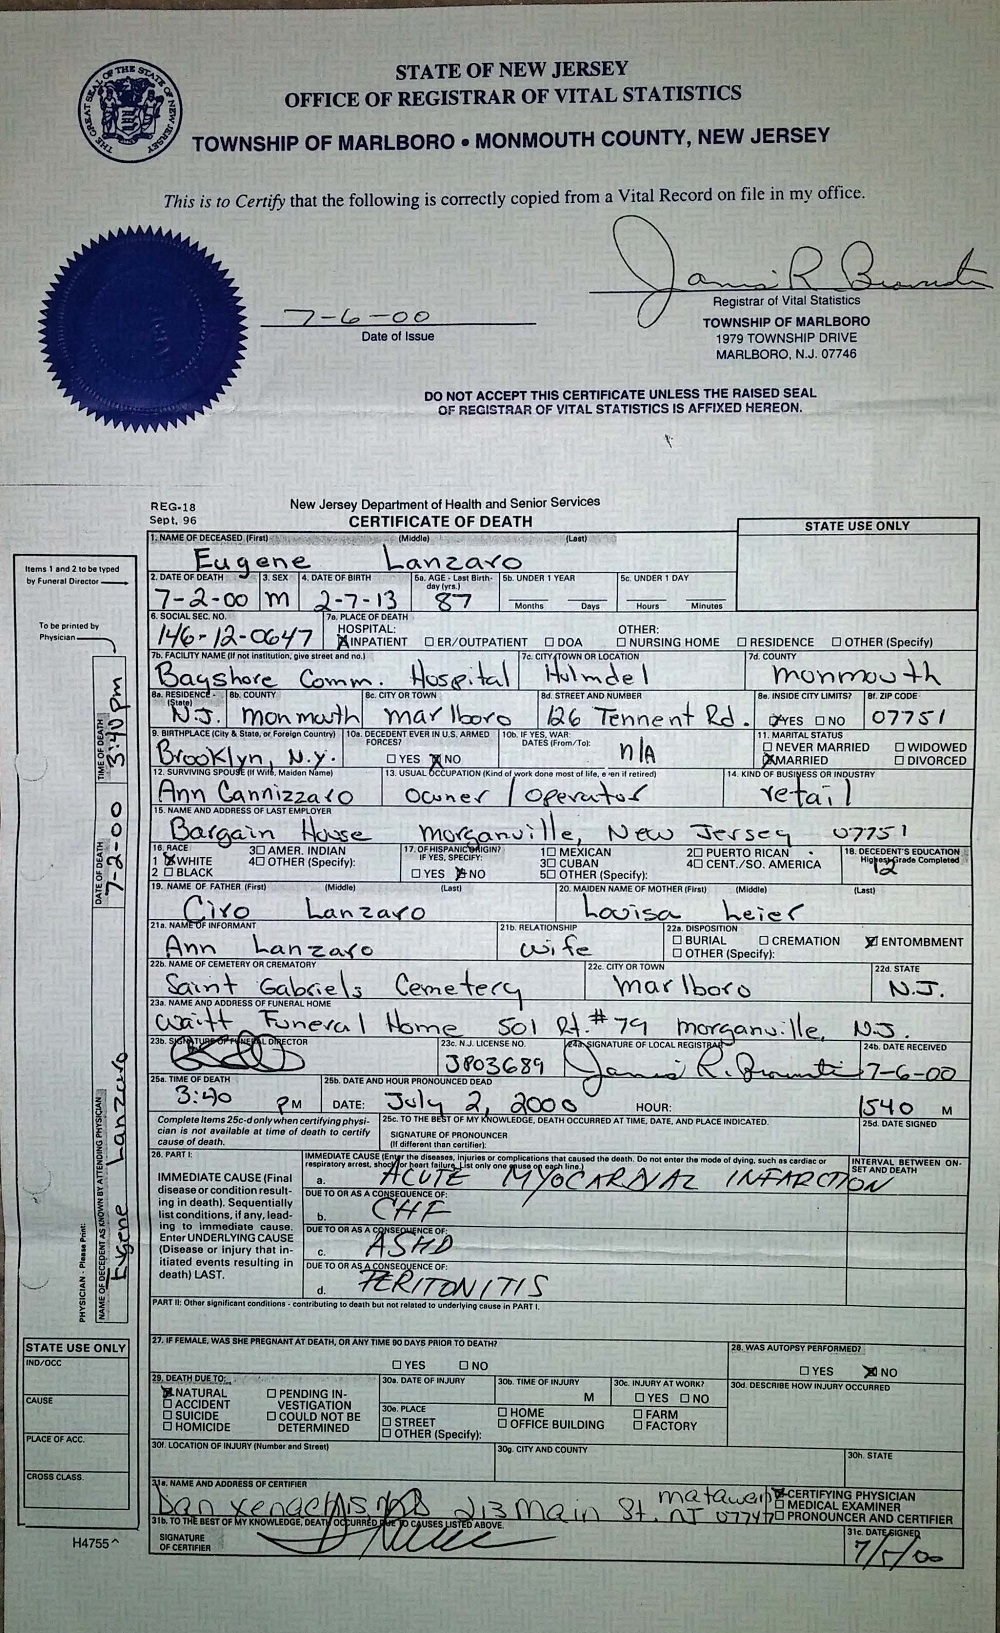 THE GREAT SEAL OF THE STATE OF NEW JERSEY
STATE OF NEW JERSEY
OFFICE OF REGISTRAR OF VITAL STATISTICS
TOWNSHIP OF MARLBORO • MONMOUTH COUNTY, NEW JERSEY
This is to Certify that the following is correctly copied from a Vital Record on file in my office.
7-6-00
Date of Issue
Registrar of Vital Statistics
TOWNSHIP OF MARLBORO
1979 TOWNSHIP DRIVE
MARLBORO, N.J. 07746
DO NOT ACCEPT THIS CERTIFICATE UNLESS THE RAISED SEAL
OF REGISTRAR OF VITAL STATISTICS IS AFFIXED HEREON.
REG-18 New Jersey Department of Health and Senior Services
Sept. 96 CERTIFICATE OF DEATH
STATE USE ONLY
1. NAME OF DECEASED (First) (Middle) (Last)
Eugene Lanzaro
2. DATE OF DEATH 3. SEX 4. DATE OF BIRTH 5a. AGE - Last Birthday (yrs.) 5b. UNDER 1 YEAR 5c. UNDER 1 DAY
7-2-00 M 2-7-13 87 Months Days Hours Minutes
6. SOCIAL SEC. NO. 7a. PLACE OF DEATH
146-12-0647 HOSPITAL: OTHER:
INPATIENT ER/OUTPATIENT DOA NURSING HOME RESIDENCE OTHER (Specify)
7b. FACILITY NAME (If not institution, give street and no.) 7c. CITY/TOWN OR LOCATION 7d. COUNTY
Bayshore Comm. Hospital Holmdel Monmouth
8a. RESIDENCE - (State) 8b. COUNTY 8c. CITY OR TOWN 8d. STREET AND NUMBER 8e. INSIDE CITY LIMITS? 8f. ZIP CODE
N.J. Monmouth Marlboro 126 Tennent Rd. YES NO 07751
9. BIRTHPLACE (City & State, or Foreign Country) 10a. DECEDENT EVER IN U.S. ARMED FORCES? 10b. IF YES, WAR: DATES (From/To): 11. MARITAL STATUS
Brooklyn, N.Y. YES NO n/A NEVER MARRIED WIDOWED
MARRIED DIVORCED
12. SURVIVING SPOUSE (If Wife, Maiden Name) 13. USUAL OCCUPATION (Kind of work done most of life, even if retired) 14. KIND OF BUSINESS OR INDUSTRY
Ann Cannizzaro owner / operator retail
15. NAME AND ADDRESS OF LAST EMPLOYER
Bargain House Morganville, New Jersey 07751
16. RACE 3 AMER. INDIAN 17. OF HISPANIC ORIGIN? 1 MEXICAN 2 PUERTO RICAN 18. DECEDENT'S EDUCATION
1 WHITE 4 OTHER (Specify): IF YES, SPECIFY: 3 CUBAN 4 CENT./SO. AMERICA Highest Grade Completed
2 BLACK YES NO 5 OTHER (Specify): 12
19. NAME OF FATHER (First) (Middle) (Last) 20. MAIDEN NAME OF MOTHER (First) (Middle) (Last)
Ciro Lanzaro Louisa Leier
21a. NAME OF INFORMANT 21b. RELATIONSHIP 22a. DISPOSITION
Ann Lanzaro wife BURIAL CREMATION ENTOMBMENT
OTHER (Specify):
22b. NAME OF CEMETERY OR CREMATORY 22c. CITY OR TOWN 22d. STATE
Saint Gabriels Cemetery Marlboro N.J.
23a. NAME AND ADDRESS OF FUNERAL HOME
Waitt Funeral Home 501 Rt. #79 Morganville, N.J.
23b. SIGNATURE OF FUNERAL DIRECTOR 23c. N.J. LICENSE NO. 24a. SIGNATURE OF LOCAL REGISTRAR 24b. DATE RECEIVED
JP03689 7-6-00
25a. TIME OF DEATH 25b. DATE AND HOUR PRONOUNCED DEAD
3:40 PM DATE: July 2, 2000 HOUR: 1540 M
Complete Items 25c-d only when certifying physician is not available at time of death to certify cause of death.
25c. TO THE BEST OF MY KNOWLEDGE, DEATH OCCURRED AT TIME, DATE, AND PLACE INDICATED. 25d. DATE SIGNED
SIGNATURE OF PRONOUNCER
(If different than certifier):
26. PART I:
IMMEDIATE CAUSE (Enter the diseases, injuries or complications that caused the death. Do not enter the mode of dying, such as cardiac or respiratory arrest, shock or heart failure. List only one cause on each line.) INTERVAL BETWEEN ONSET AND DEATH
IMMEDIATE CAUSE (Final disease or condition resulting in death). Sequentially list conditions, if any, leading to immediate cause. Enter UNDERLYING CAUSE (Disease or injury that initiated events resulting in death) LAST.
a. ACUTE MYOCARDIAL INFARCTION
DUE TO OR AS A CONSEQUENCE OF:
b. CHF
DUE TO OR AS A CONSEQUENCE OF:
c. ASHD
DUE TO OR AS A CONSEQUENCE OF:
d. PERITONITIS
PART II: Other significant conditions - contributing to death but not related to underlying cause in PART I.
27. IF FEMALE, WAS SHE PREGNANT AT DEATH, OR ANY TIME 90 DAYS PRIOR TO DEATH? 28. WAS AUTOPSY PERFORMED?
YES NO YES NO
29. DEATH DUE TO: 30a. DATE OF INJURY 30b. TIME OF INJURY 30c. INJURY AT WORK? 30d. DESCRIBE HOW INJURY OCCURRED
NATURAL PENDING INVESTIGATION M YES NO
ACCIDENT
SUICIDE COULD NOT BE DETERMINED
HOMICIDE
30e. PLACE HOME FARM
STREET OFFICE BUILDING FACTORY
OTHER (Specify):
30f. LOCATION OF INJURY (Number and Street) 30g. CITY AND COUNTY 30h. STATE
31a. NAME AND ADDRESS OF CERTIFIER
Dan 213 Main St. Matawan NJ 07747
CERTIFYING PHYSICIAN
MEDICAL EXAMINER
PRONOUNCER AND CERTIFIER
31b. TO THE BEST OF MY KNOWLEDGE, DEATH OCCURRED DUE TO CAUSES LISTED ABOVE. 31c. DATE SIGNED
SIGNATURE OF CERTIFIER 7/5/00
Items 1 and 2 to be typed
by Funeral Director
To be printed by
Physician
PHYSICIAN - Please Print:
NAME OF DECEDENT AS KNOWN BY ATTENDING PHYSICIAN
Eugene Lanzaro
DATE OF DEATH
7-2-00
TIME OF DEATH
3:40 pm
STATE USE ONLY
IND/OCC
CAUSE
PLACE OF ACC.
CROSS CLASS.
H4755